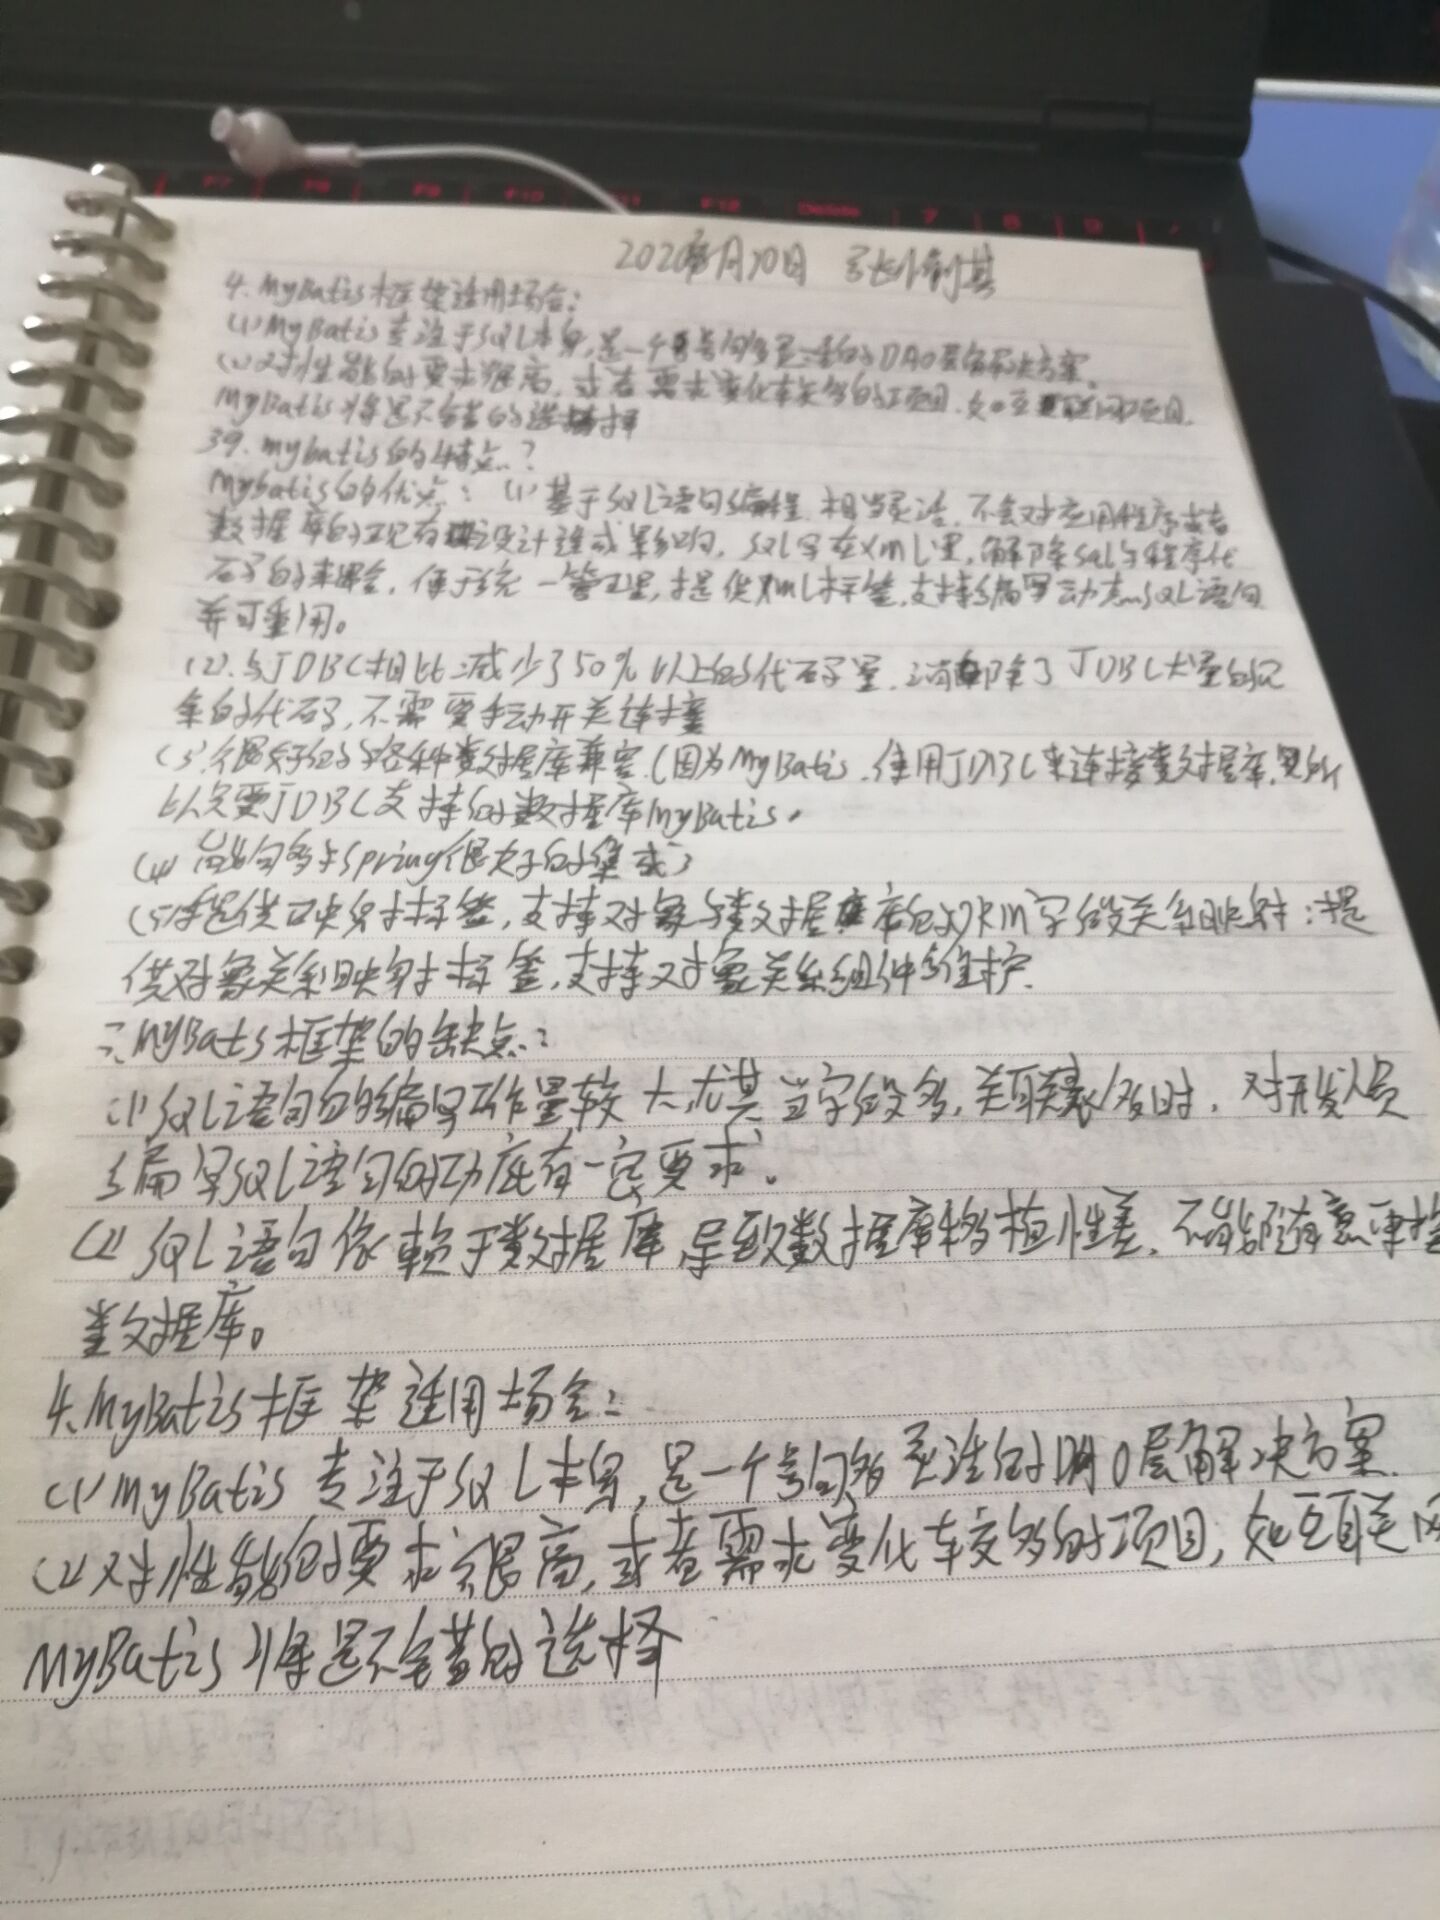 F7 F8 F9 F10 F11 F12 Delete 7 8 9
2020年 月10日
4. MyBatis框架适用场合:
(1) MyBatis专注于SQL本身,是一个足够灵活的DAO层解决方案。
(2) 对性能的要求很高,或者需求变化较多的项目,如互联网项目,
MyBatis将是不错的选择
39. mybatis的特点?
Mybatis的优点: (1) 基于SQL语句编程,相当灵活,不会对应用程序或者
数据库的现有设计造成影响,SQL写在XmL里,解除sql与程序代
码的耦合,便于统一管理,提供XmL标签,支持编写动态SQL语句
并可重用。
(2).与JDBC相比,减少了50%以上的代码量,消除了JDBC大量的冗
余的代码,不需要手动开关连接
(3)很好的与各种数据库兼容(因为MyBatis,使用JDBC来连接数据库,所
以只要JDBC支持的数据库MyBatis.
(4) 能够与spring很好的集成
(5)提供映射标签,支持对象与数据库的ORM字段关系映射;提
供对象关系映射标签,支持对象关系组件维护.
三.MyBatis框架的缺点:
(1) SQL语句的编写工作量较大,尤其当字段多,关联表多时,对开发人员
编写SQL语句的功底有一定要求.
(2) SQL语句依赖于数据库,导致数据库移植性差,不能随意更换
数据库。
4.MyBatis框架适用场合:
(1) MyBatis专注于SQL本身,是一个足够灵活的DAO层解决方案.
(2) 对性能的要求很高,或者需求变化较多的项目,如互联网
MyBatis将是不错的选择